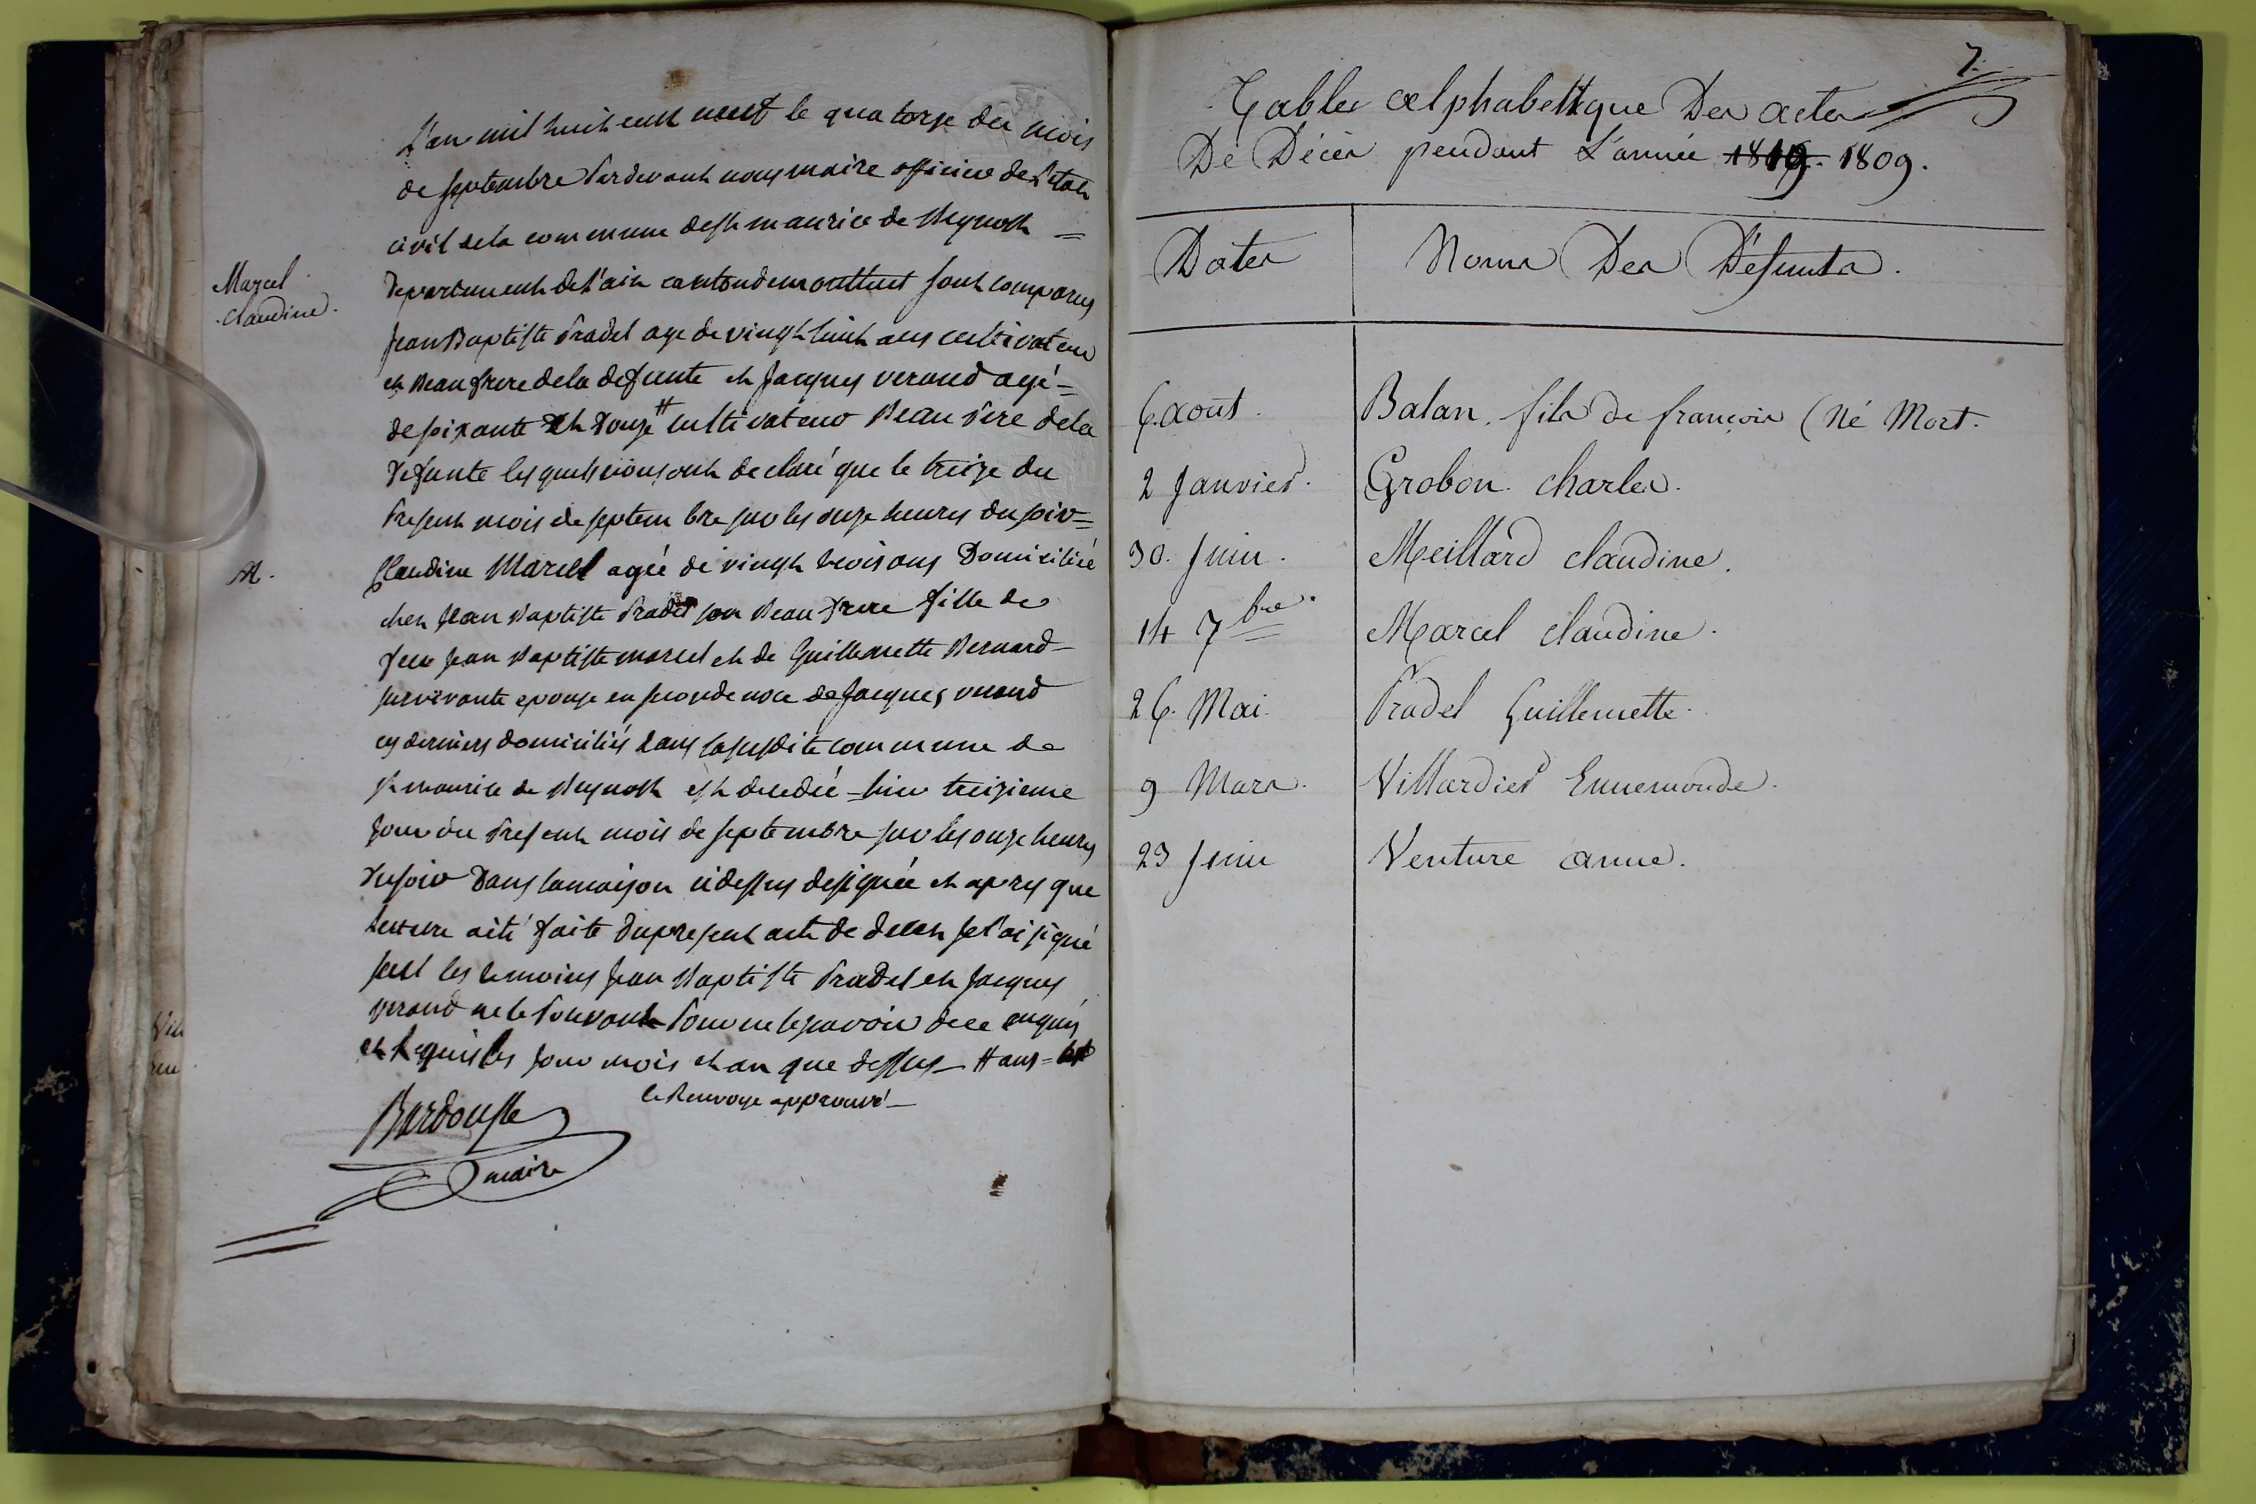 L'an mil huit cent neuf le quatorze du mois
de septembre Pardevant nous maire officier de l'etat
civil de la commune de st maurice de Beynost =
Departement de l'ain canton de montluel sont comparus
Marcel
claudine.
Jean Baptiste Pradel age de vingt huit ans cultivateur
et Beaufrere de la defunte et Jacques verand agé =
de soixante et douze # cultivateur Beau Pere de la
defunte lesquels nous ont declaré que le treize du
Present mois de septembre sur les onze heures du soir =
M.
Claudine Marcel agée de vingt trois ans Domiciliée
chez Jean Baptiste Pradel son Beau frere fille de
feu Jean Baptiste marcel et de Guillemette Bernard
survivante epouse en seconde noce de Jacques verand
ces derniers domiciliés dans la susdite commune de
st maurice de Beynost est decedée = hier treizieme
jour du Present mois de septembre sur les onze heures
du soir Dans la maison ci dessus designée et apres que
lecture a été faite du present acte de deces je l'ai signé
seul les temoins Jean Baptiste Pradel et Jacques
verand ne le Pouvant Pour ne le savoir de ce enquis
et requis les jour mois et an que dessus # ans =
le Renvoye approuvé
Bardousse
maire
7.
Table alphabettque Des actes
De Décès pendant L'année 1819. 1809.
Dates Noms Des Défunts.
6. aout. Balan, fils de françois (Né Mort.
2 Janvier. Grobon charles.
30. Juin. Meillard claudine.
14 7bre. Marcel claudine.
26. Mai. Pradel Guillemette.
9 Mars. Villardier Ennemonde.
23 Juin Venture anne.